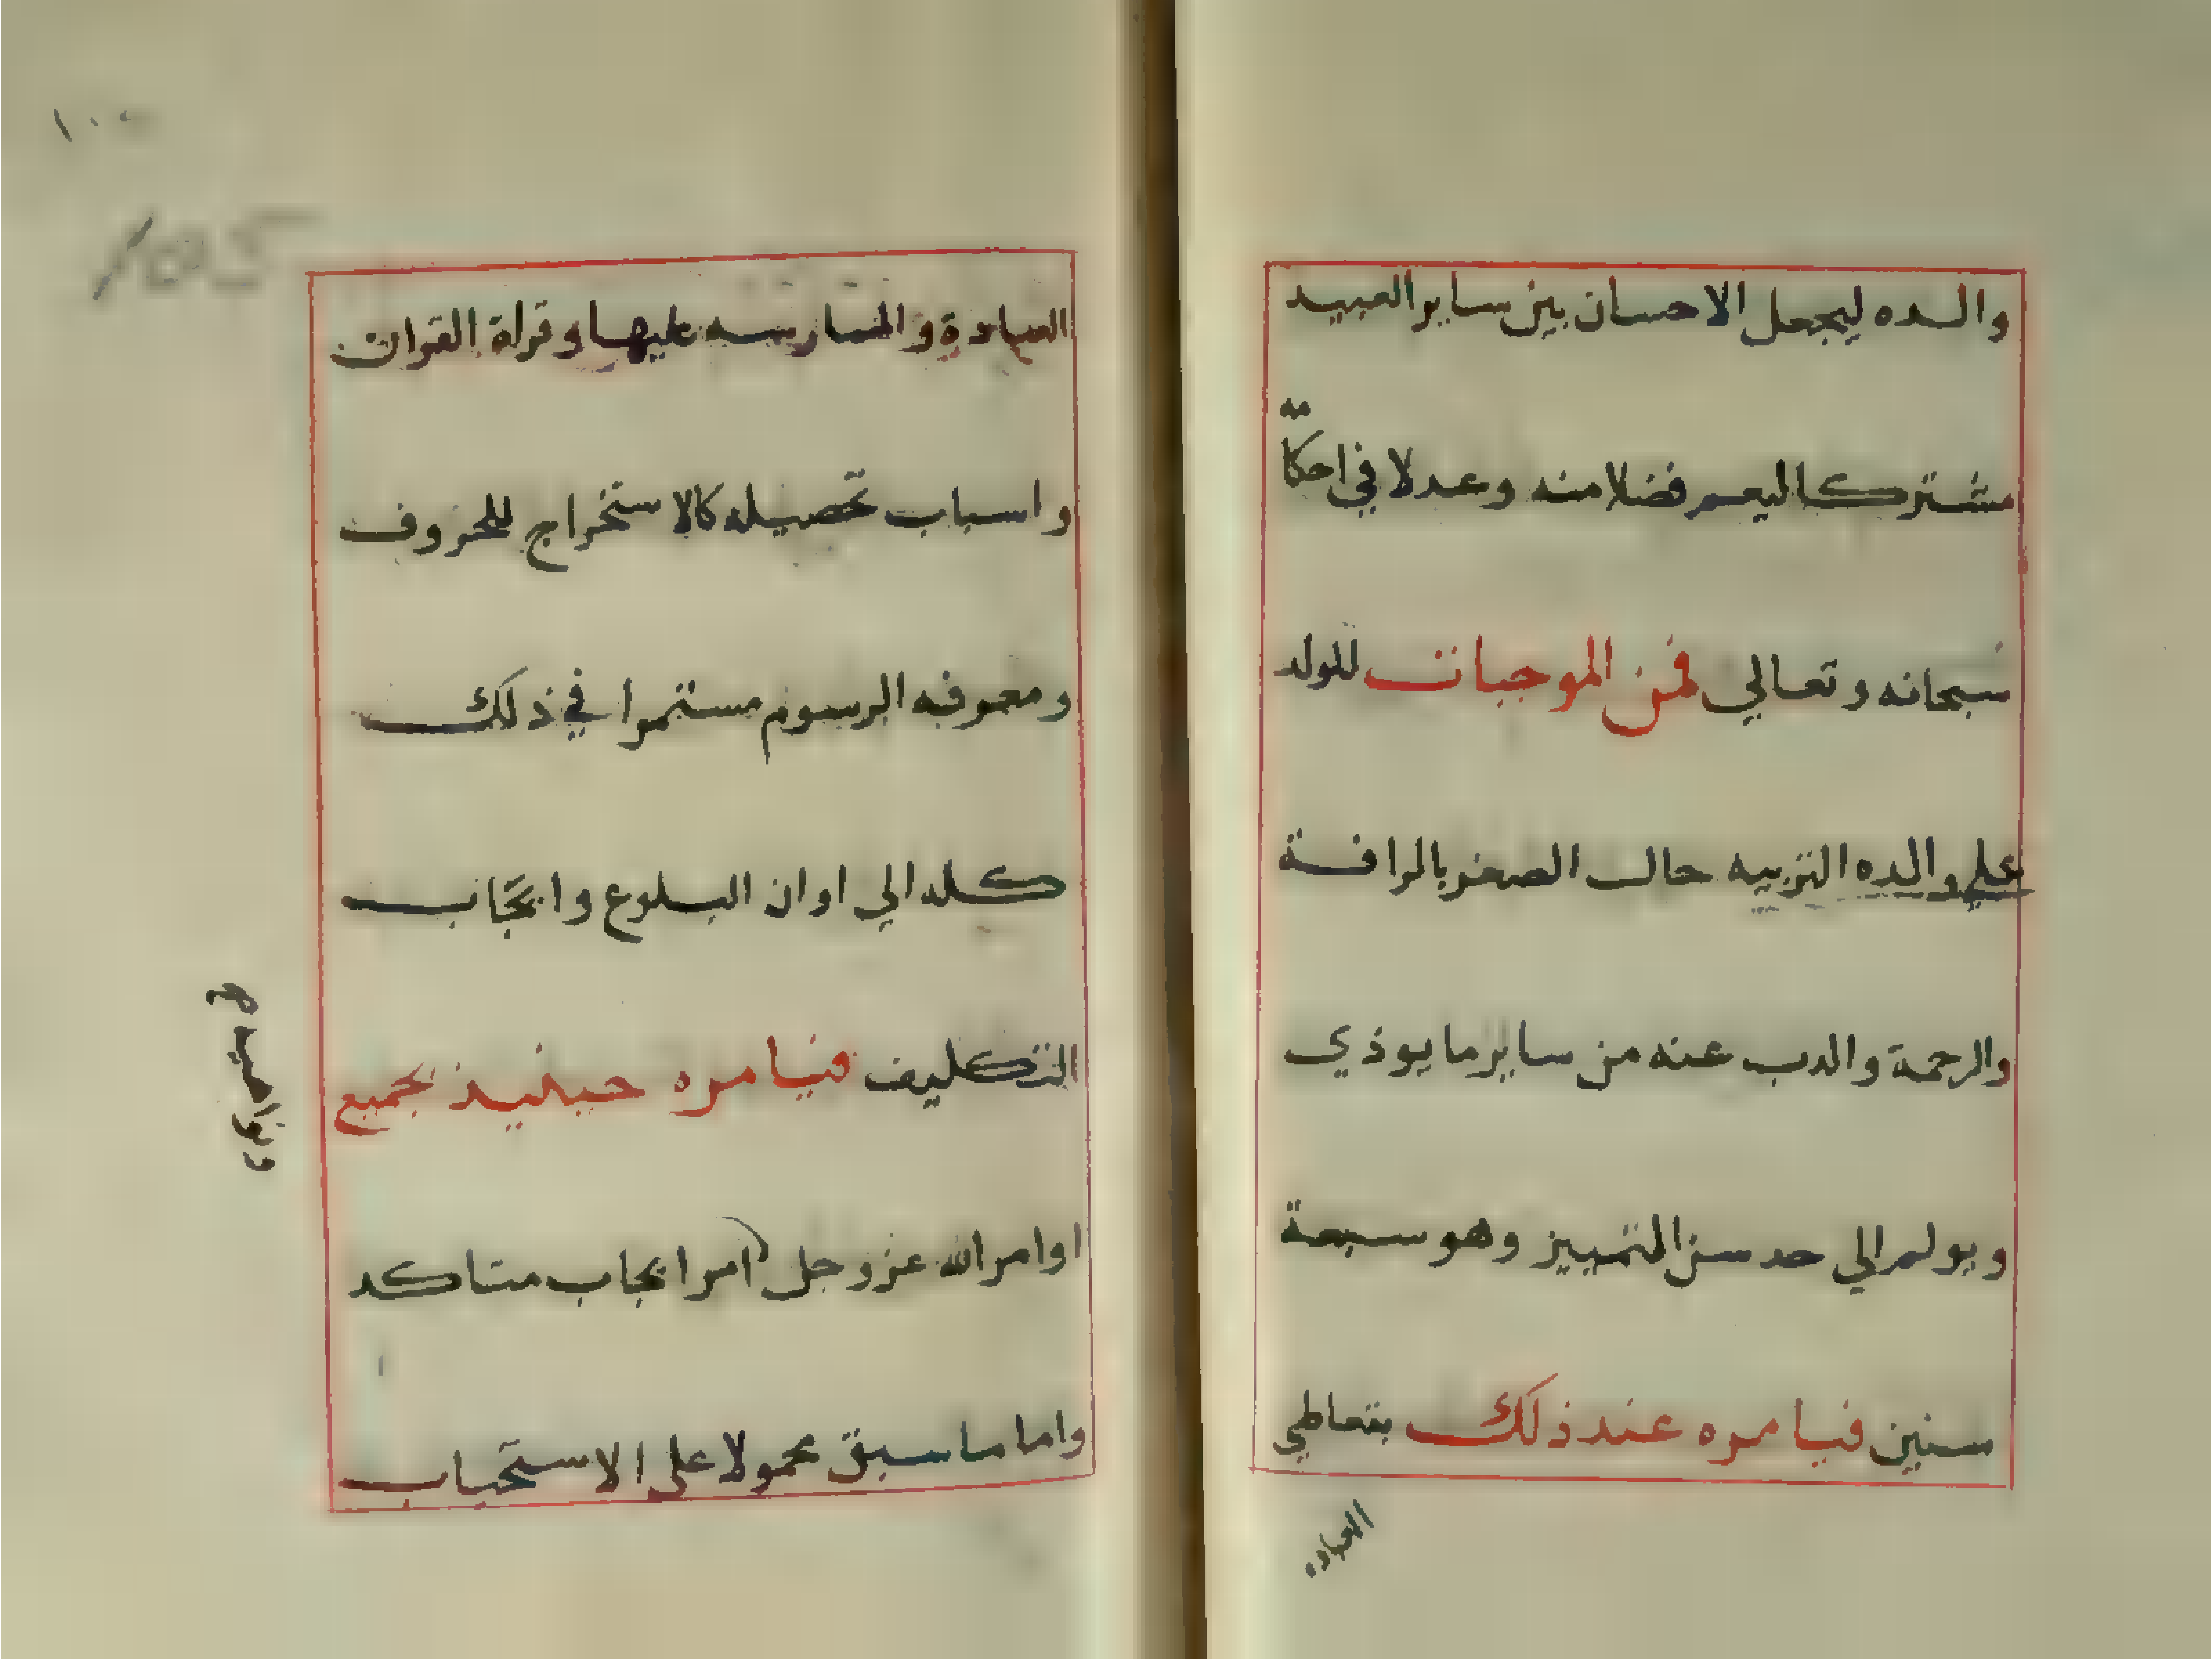 والده ليجعل الاحسان بين ساير العبيد
مشتركا ليعم فضلا منه وعدلا في احكامه
سبحانه وتعالي فمن الموجبات للولد
علي والده التربيه حال الصغر بالرافة
والرحمة والدب عنه من ساير ما يوذي
ويولم الي حد سن التمييز وهو سبعة
سنين فيامره عند ذلك بتعاطي
العباده
العبادة والممارسه عليها وقراة القران
واسباب تحصيله كالاستخراج للحروف
ومعرفه الرسوم مستمرا في ذلك
كله الي اوان البلوع وايجاب
التكليف فيامره حينيذ بجميع
اوامر الله عز وجل امر ايجاب متاكد
واما ما سبق محمولا على الاستحباب
ونواهيه
١٠٥
105